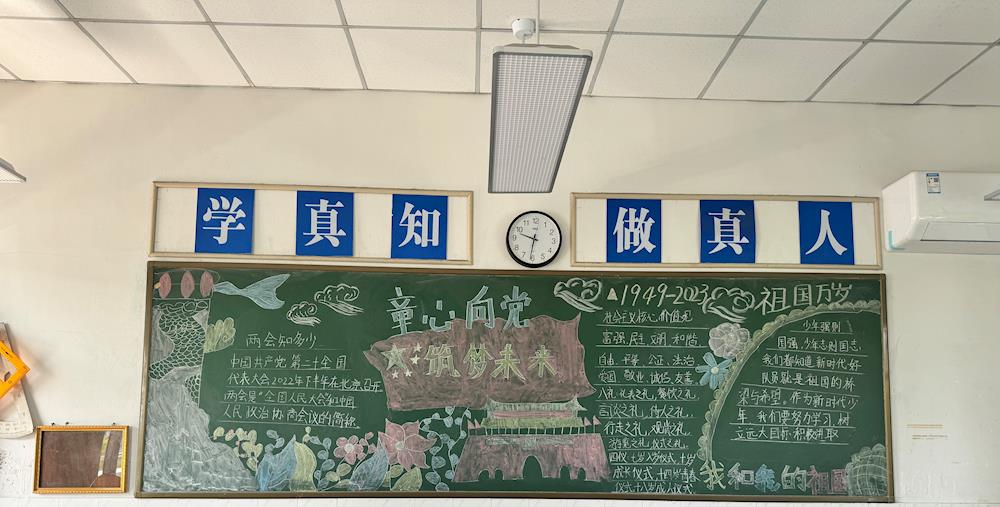 学真知
做真人
童心向党
筑梦未来
两会知多少
中国共产党第二十全国
代表大会2022年下半年在北京召开
两会是"全国人民大会和中国
人民政治协商会议的简称
1949-2023
祖国万岁
社会主义核心价值观
富强 民主 文明 和谐
自由 平等 公正 法治
爱国 敬业 诚信 友善
八礼 礼表之礼 餐饮之礼
言谈之礼 待人之礼
行走之礼 观赏之礼
游览之礼 仪式之礼
四仪 七岁入学仪式 十岁
成长仪式 十四岁青春
仪式十八岁成人仪式
少年强则
国强,少年志则国志,
我们都知道新时代好
队员就是祖国的栋
梁与希望。作为新时代少
年,我们要努力学习,树
立远大目标积极进取
我和我的祖国